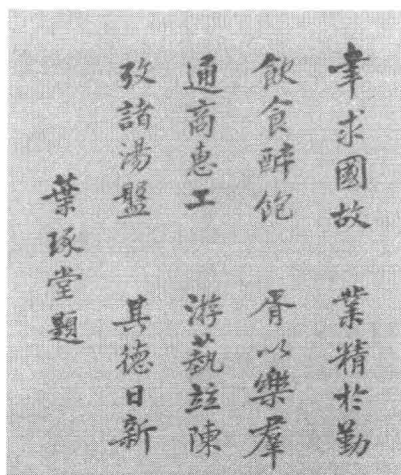 聿求國故 業精於勤
飲食醉飽 胥以樂羣
通商惠工 游藝竝陳
攷諸湯盤 其德日新
葉琢堂題